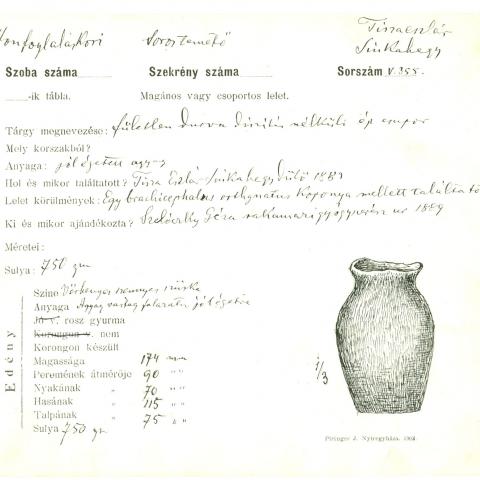 Honfoglaláskori Sorostemető Tiszaeszlár
Sinkahegy
Szoba száma Szekrény száma Sorszám V.355.
-ik tábla. Magános vagy csoportos lelet.
Tárgy megnevezése: fületlen durva díszítés nélküli ép csupor
Mely korszakból?
Anyaga: jól égetett agyag
Hol és mikor találtatott? Tisza Eszlár-Sinkahegy dűlő 1883
Lelet körülmények: Egy brachicephalus orthgnatus koponya mellett találtatott
Ki és mikor ajándékozta? Géza vakamari gyógyszerész úr 1889
Méretei:
Sulya: 750 gm
Edény
Szine Vörhenyes szennyes szürke
Anyaga Agyag vastag falazatu jól égetve
Jó v. rosz gyurma
Korongon v. nem
Korongon készült
Magassága 174 mm
Peremének átmérője 90 " "
Nyakának " 70 " "
Hasának " 115 " "
Talpának " 75 " "
Sulya 750 gm
1/3
Piringer J. Nyiregyháza. 1902.